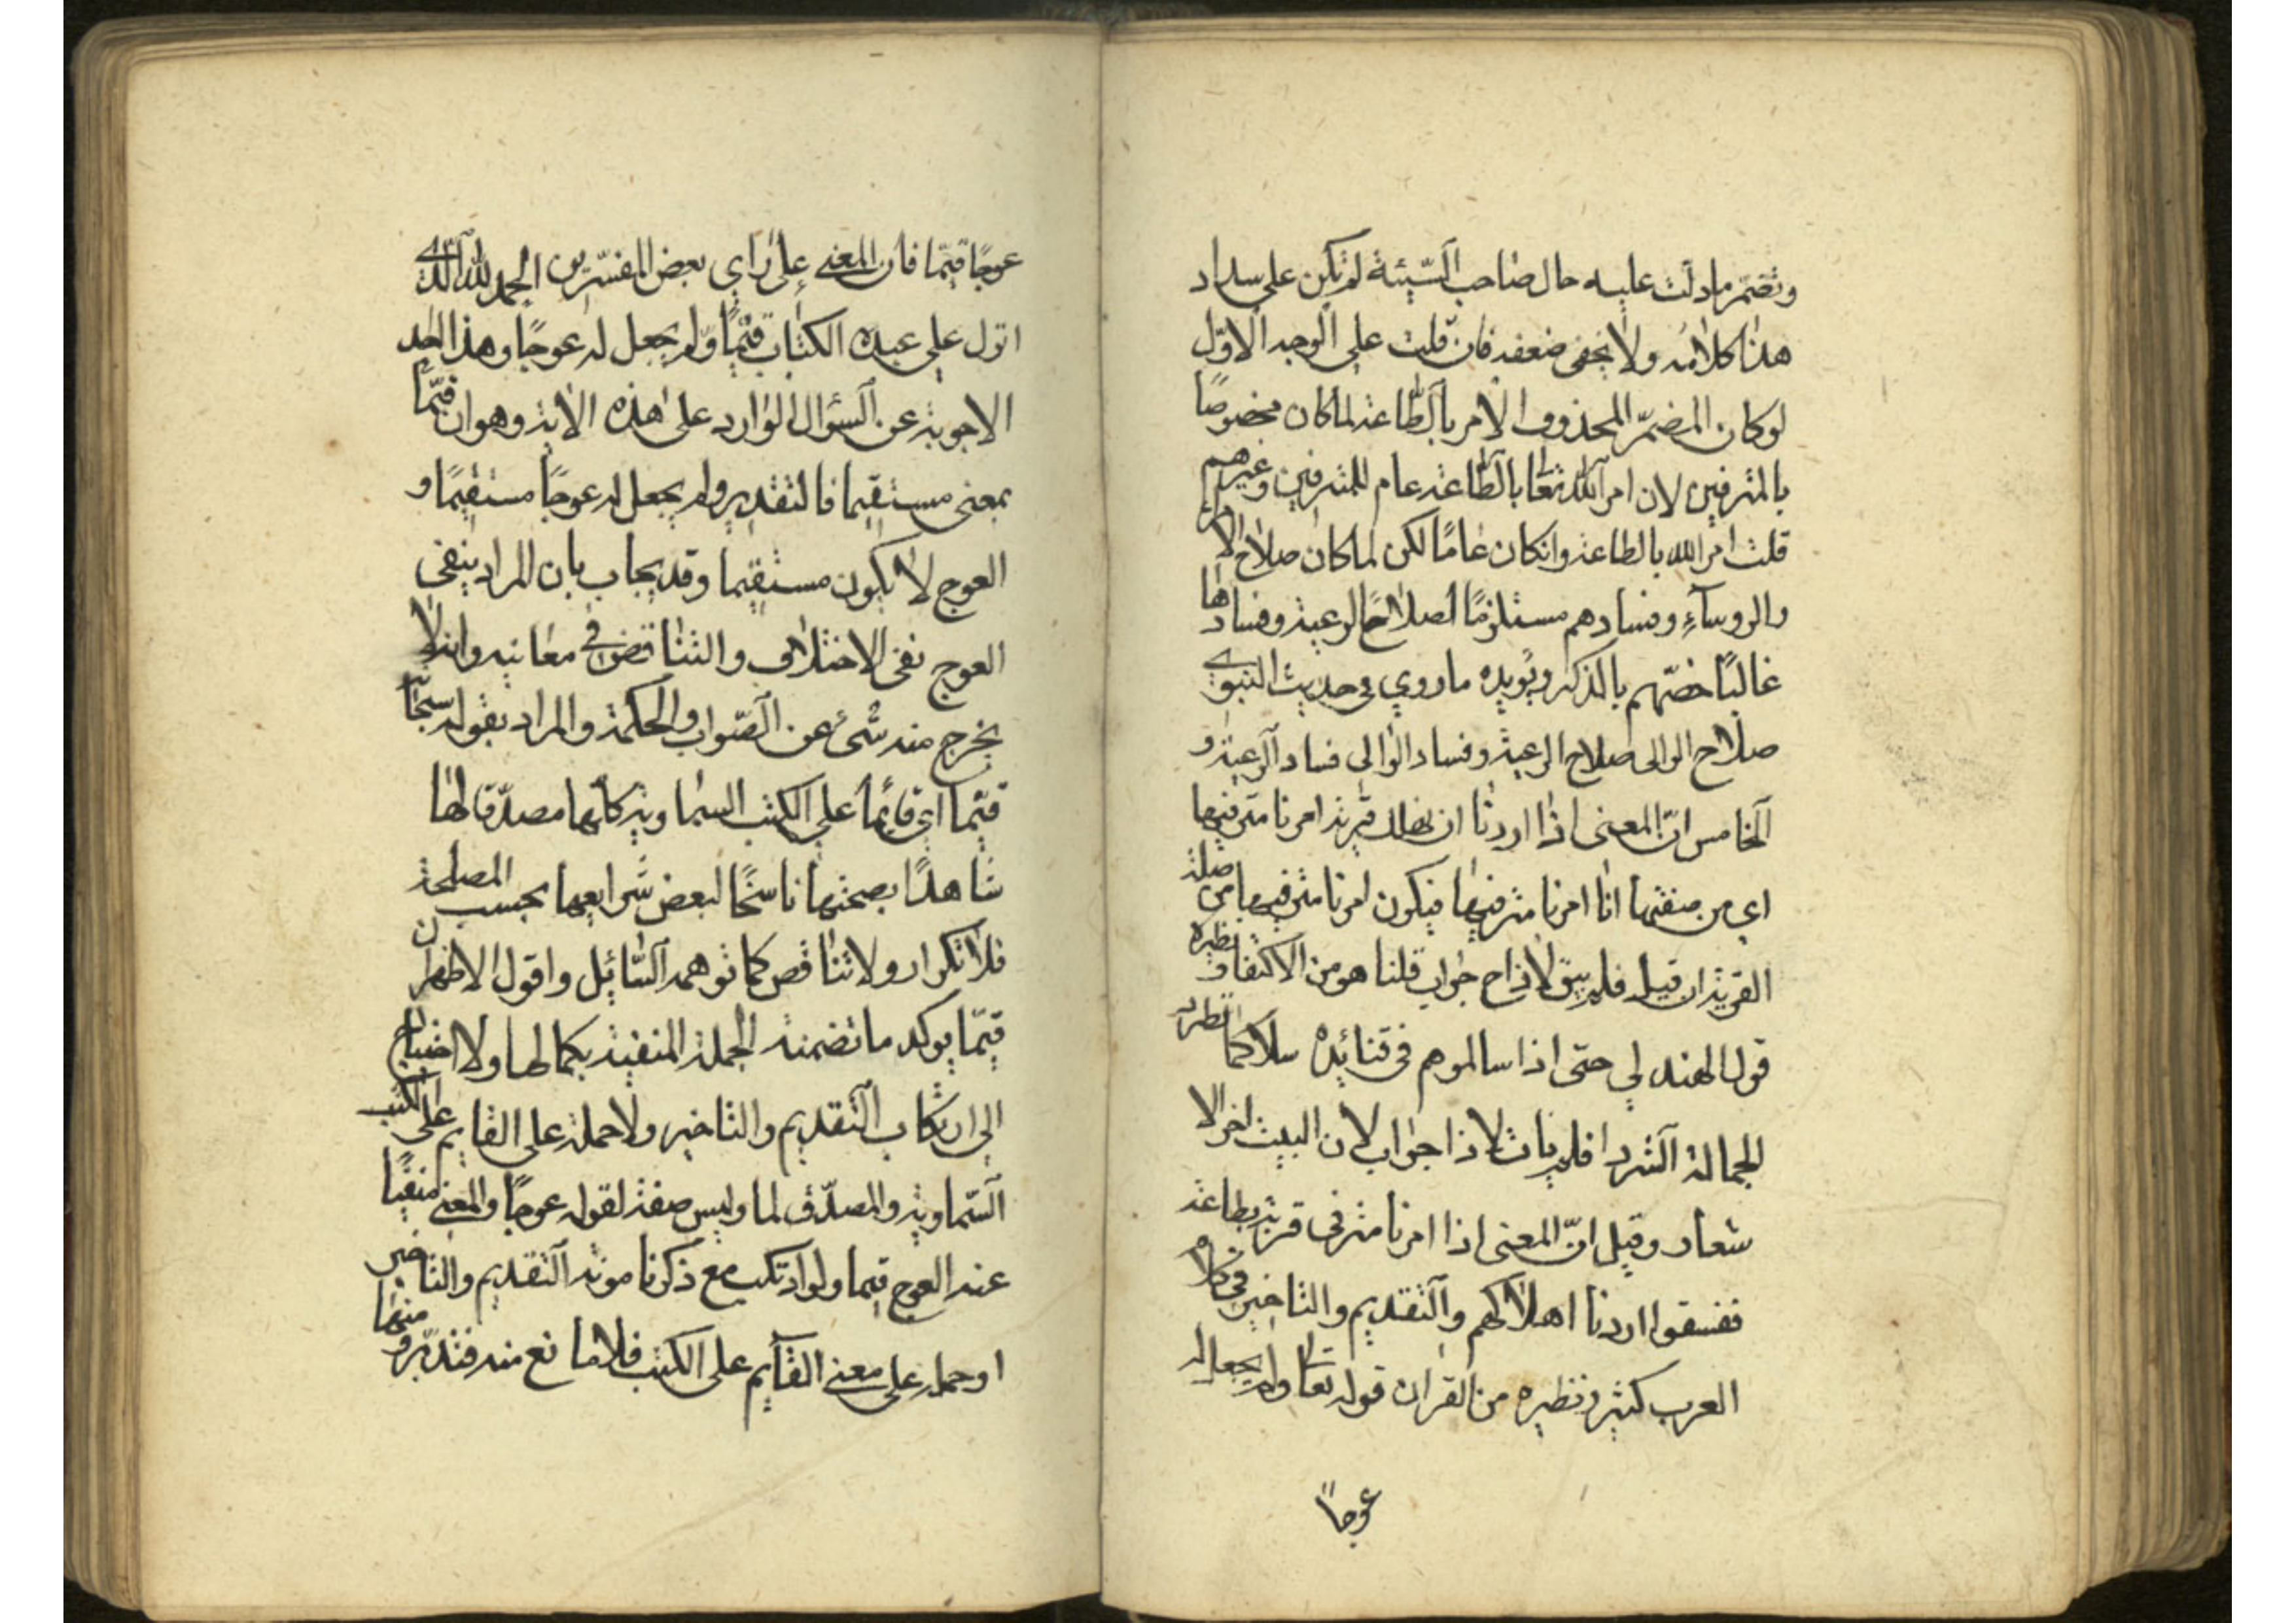 وتضمر ما دلت عليه حال صاحب السّيئة لم تكن على سداد
هذا كلامه ولا يخفى ضعفه فان قلت على الوجه الاوّل
لو كان المضمّر المحذوف الامر بالطّاعة لما كان مخصوصًا
بالمترفين لان امر اللّه تعا بالطّاعة عام للمترفين وغيرهم
قلت امر الله بالطاعة وانكان عامًا لكن لما كان صلاح الا
والروسآء وفسادهم مستلزمًا لصلاح الرعية وفسادها
غالبًا خصّهم بالذكر ويؤيده ما روي في حديث النبوي
صلاح الوالى صلاح الرعية وفساد الوالى فساد الرعية و
الخامس انّ المعنى اذا اردنا ان نهلك قرية امرنا مترفيها
اي من صفتها انا امرنا مترفيها فيكون امرنا مترفيها من صلة
القرية ان قيل فلم يبق لاذاح جواب قلنا هو من الاكتفا ونظيره
قول الهندلي حتى اذا سالموهم في قتائده سلا كما تطرد
الجمالة الشردا فلم يات لاذا جواب لان البيت اخر الا
شعار وقيل انّ المعنى اذا امرنا مترفى قرية بطاعة
ففسقوا اردنا اهلاكهم والتقديم والتاخير في كلام
العرب كثير ونظيره من القران قوله تعا ولم يجعل له
عوجًا
عوجًا قيّما فان المعنى على راي بعض المفسّرين الحمد للّه الّذي
انزل على عبده الكتاب قيّمًا ولم يجعل له عوجًا وهذا احد
الاجوبة عن السؤال الوارد على هذه الاية وهو ان قيّمًا
بمعنى مستقيما فالتقدير ولم يجعل له عوجًا مستقيمًا و
العوج لا يكون مستقيما وقد يجاب بان المراد ينفى
العوج نفى الاختلاف والتناقض في معانيه وانه لا
يخرج منه شئ عن الصّواب والحكمة والمراد بقوله سبحا
قيّما اي قائمًا على الكتب السماوية كلّها مصدّقا لها
شاهدًا بصحتها ناسخًا لبعض شرايعها بحسب المصلحة
فلا تكرار ولا تناقص كما توهمه السّائل واقول الاظهر ان
قيّما يوكد ما تضمنه الجملة المنفية بكمالها ولا احتياج
الى ارتكاب التقديم والتاخير ولا حمله على القايم على الكتب
السّماوية والمصدّق لما وليس صفة لقوله عوجًا والمعنى منفيًا
عنه العوج قيما ولو ارتكب مع ذكرنا مونة التقديم والتاخير
او حمله على معنى القآيم على الكتب فلا مانع منه فتدبّر و منها